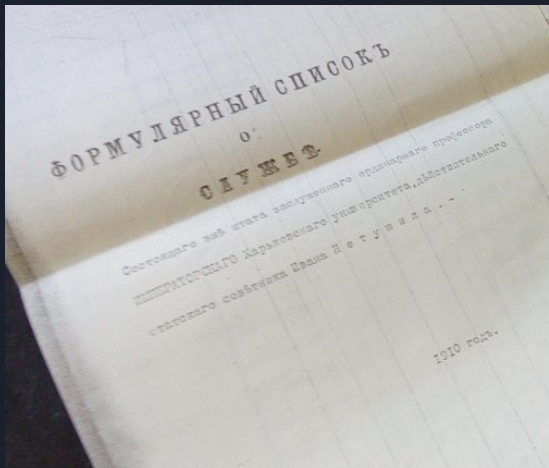 ФОРМУЛЯРНЫЙ СПИСОКЪ
О
СЛУЖБѢ.
Состоящаго внѣ штата заслуженнаго ординарнаго профессора
ИМПЕРАТОРСКАГО Харьковскаго университета, дѣйствительнаго
статскаго совѣтника Ивана Нетушила.-.
1910 годъ.